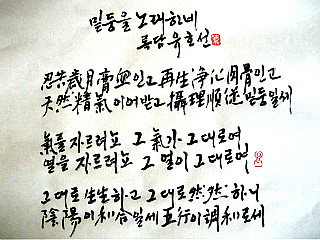 밑둥을 노래하네
류담 육호선
忍苦歲月膏血인고 再生淨心肉骨인고
天然精氣이어받고 攝理順從 밑둥일체
氣를 자르려뇨 그 氣가 그대로여
얼을 자르려뇨 그 얼이 그대로여
그대로 生生하고 그대로 然然하니
陰陽이 和合일세 五行이 調和로세